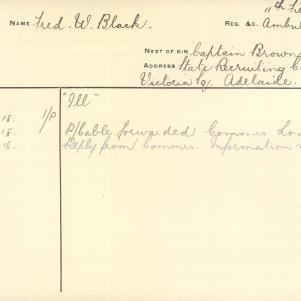 11th Fie
NAME Fred. W. Black. REG. &C. Ambul
NEXT OF KIN Captain Brown
ADDRESS State Recruiting C
Victoria Sq. Adelaide.
"Ill"
18. I/P
18. P/Cable forwarded Commrs. Lon
18. Reply from Commrs. Information